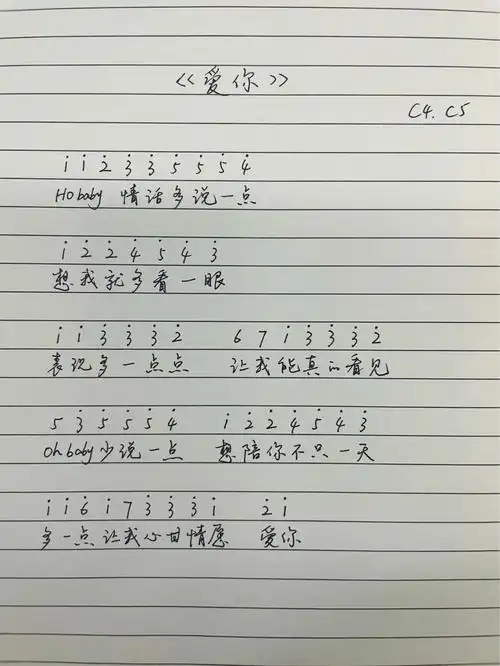 《爱你》
C4. C5
i i 2̇ 3̇ 3̇ 5̇ 5̇ 5̇ 4̇
Ho baby 情话多说一点
i 2̇ 2̇ 4̇ 5̇ 4̇ 3̇
想我就多看一眼
i i 3̇ 3̇ 3̇ 2̇ 6 7 i 3̇ 3̇ 3̇ 2̇
表现多一点点 让我能真的看见
5 3̇ 5̇ 5̇ 5̇ 4̇ i 2̇ 2̇ 4̇ 5̇ 4̇ 3̇
Oh baby少说一点 想陪你不只一天
i i 6̇ i 7 3̇ 3̇ 3̇ i 2̇ i
多一点让我心甘情愿 爱你